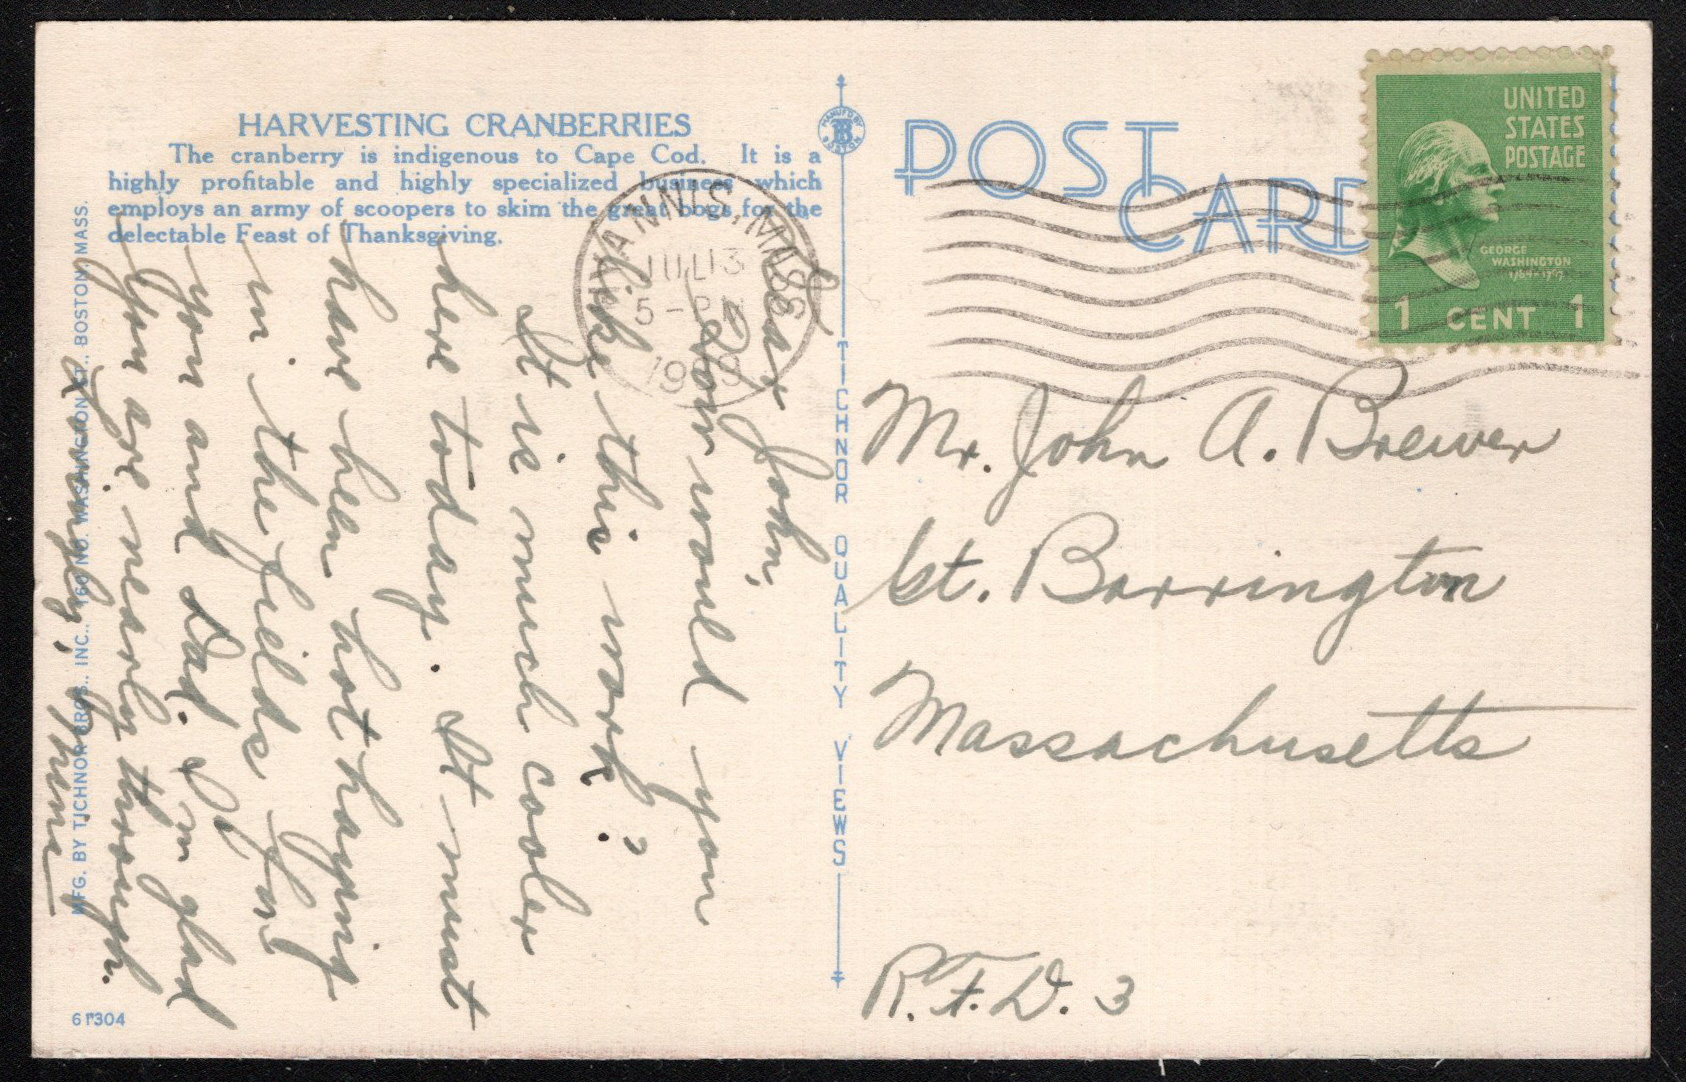 HARVESTING CRANBERRIES
The cranberry is indigenous to Cape Cod. It is a
highly profitable and highly specialized business which
employs an army of scoopers to skim the great bogs for the
delectable Feast of Thanksgiving.
Dear John,
How would you
like this work?
It is much cooler
here today. It must
have been hot haying
in the fields for
you and Dad. I'm glad
you are nearly through.
Lovingly,
MFG. BY TICHNOR BROS., INC., 160 NO. WASHINGTON ST., BOSTON, MASS.
61304
MANUF'D BY
TB
BOSTON
TICHNOR QUALITY VIEWS
POST
CARD
HYANNIS, MASS
JUL 13
5-PM
19
UNITED
STATES
POSTAGE
GEORGE
WASHINGTON
1789-1797
1 CENT 1
Mr. John A. Brewer
Gt. Barrington
Massachusetts
R.F.D. 3